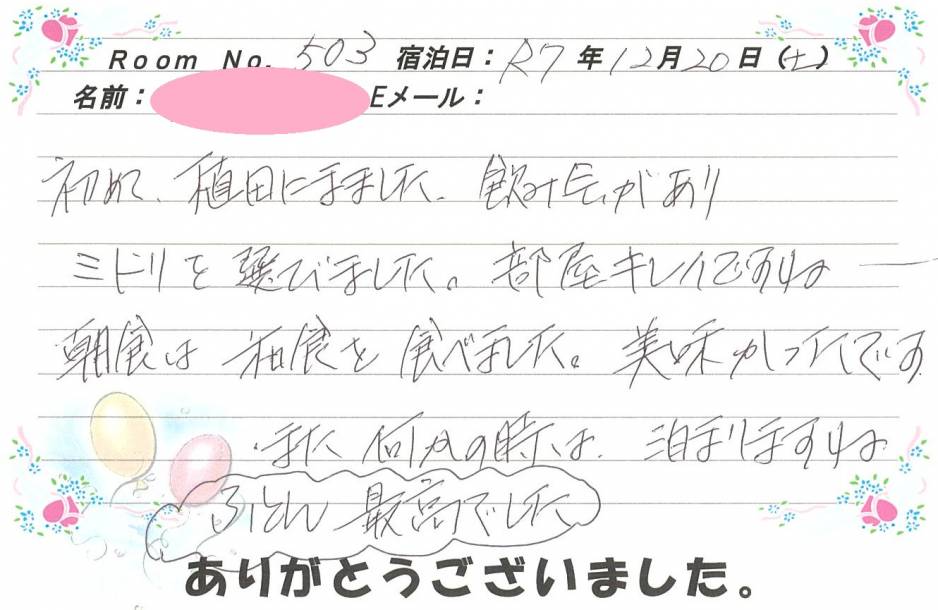 Room No. 503 宿泊日：R7年12月20日（土）
名前： Eメール：
初めて、植田にきました。飲み会があり
ミドリを選びました。部屋キレイですね―
朝食は和食を食べました。美味かったです
また何かの時は、泊まりますね
ふとん最高でした
ありがとうございました。